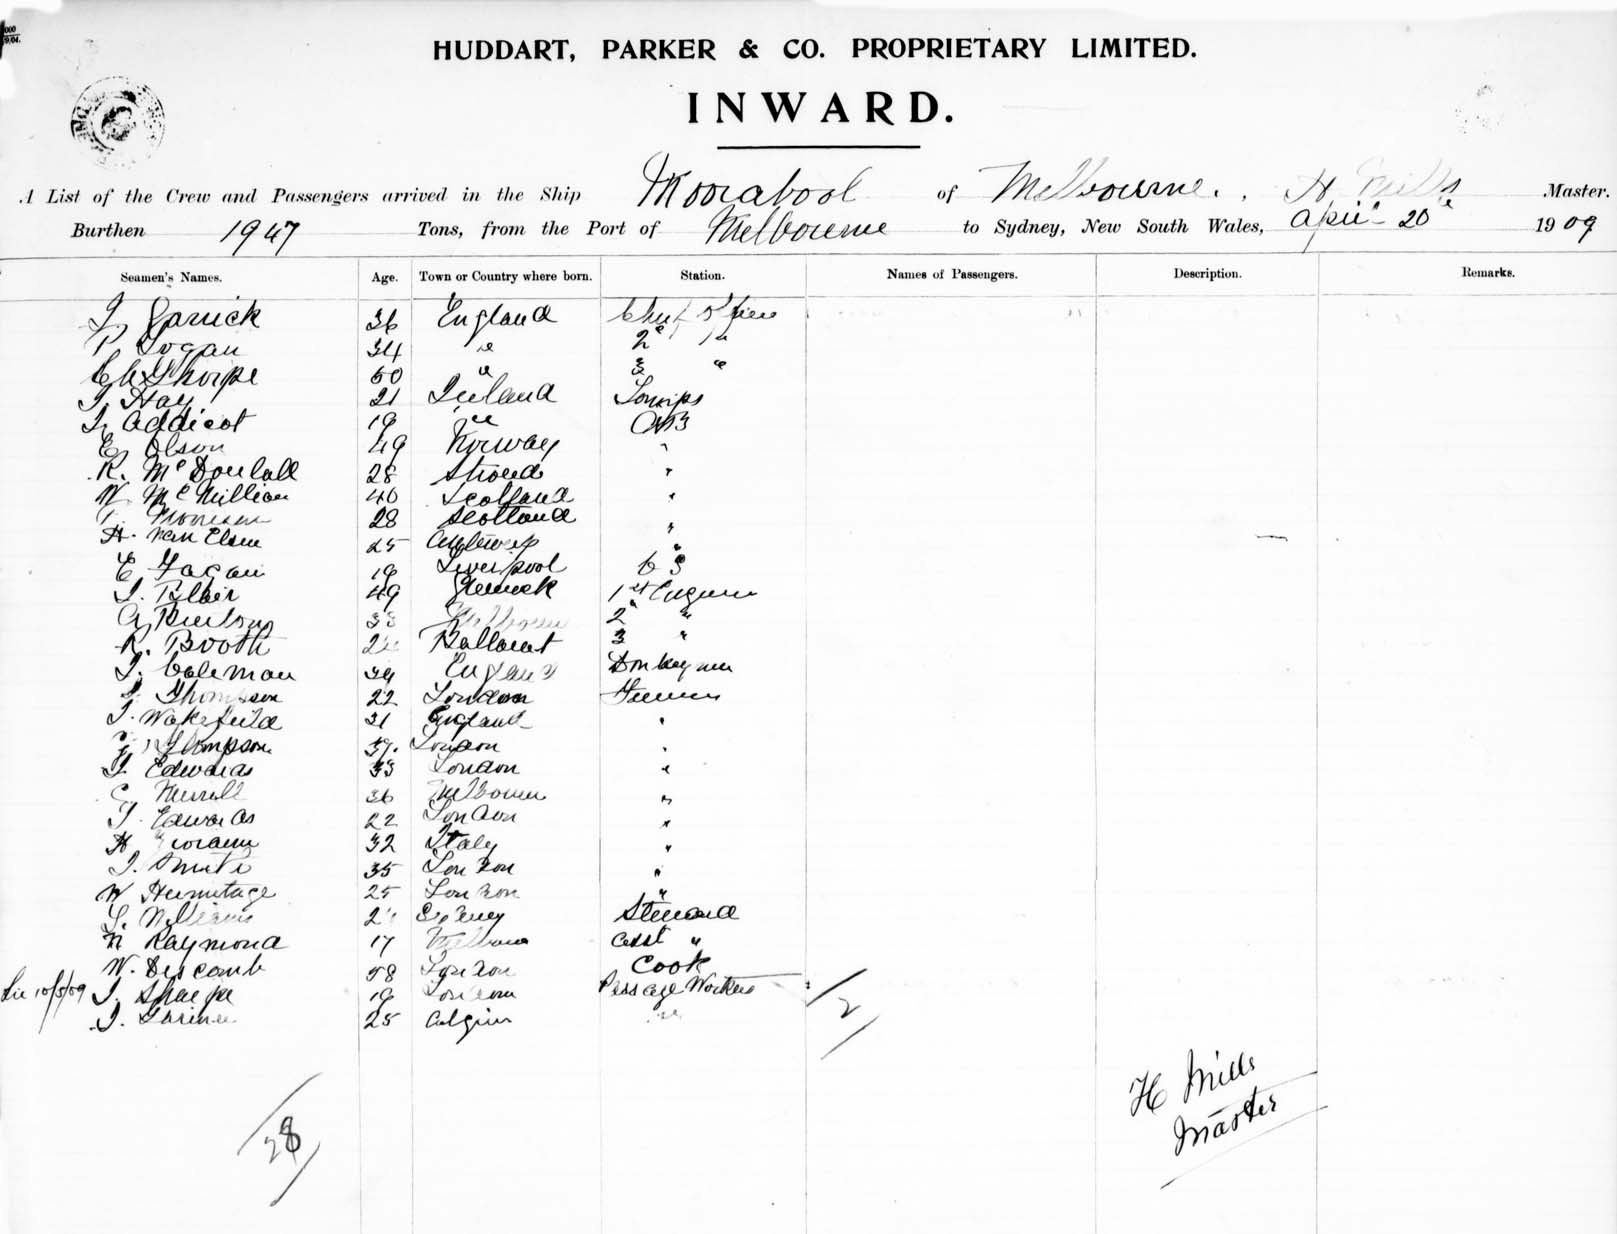 HUDDART, PARKER & CO. PROPRIETARY LIMITED.
INWARD.
A List of the Crew and Passengers arrived in the Ship Moorabool of Melbourne. H Mills Master.
Burthen 1947 Tons, from the Port of Melbourne to Sydney, New South Wales, April 20 1909
Seamen's Names. Age. Town or Country where born. Station. Names of Passengers. Description. Remarks.
36 England Chief Officer
P Logan 34 " 2 "
Thorpe 50 " 3 "
J. Hay 21 Ireland Lamps
J. Addicot 19 " AB
E. Olson 49 Norway "
R. McDougall 28 Stroud "
W McMillian 40 Scotland "
Morrison 28 Scotland "
H. Van Elsen 25 Antwerp "
E Fagan 19 Liverpool
J. Blair 49 1st Engineer
33 Melbourne 2 "
R. Booth Ballarat 3 "
J. Coleman 39 England Donkeyman
J. Thompson 22 London Firemen
J. Wakefield 31 England "
Thompson 37. London "
J. Edwards 33 London "
36 Melbourne "
J. Edwards 22 London "
H 32 Italy "
J. Smith 35 London "
W Hermitage 25 London "
Williams Sydney Steward
Raymond 17 Melbourne Asst "
W. Descomb 58 London Cook
10/5/09 J. Sharpe 19 London Passage Workers
J. 25 "
2
28
H Mills
Master